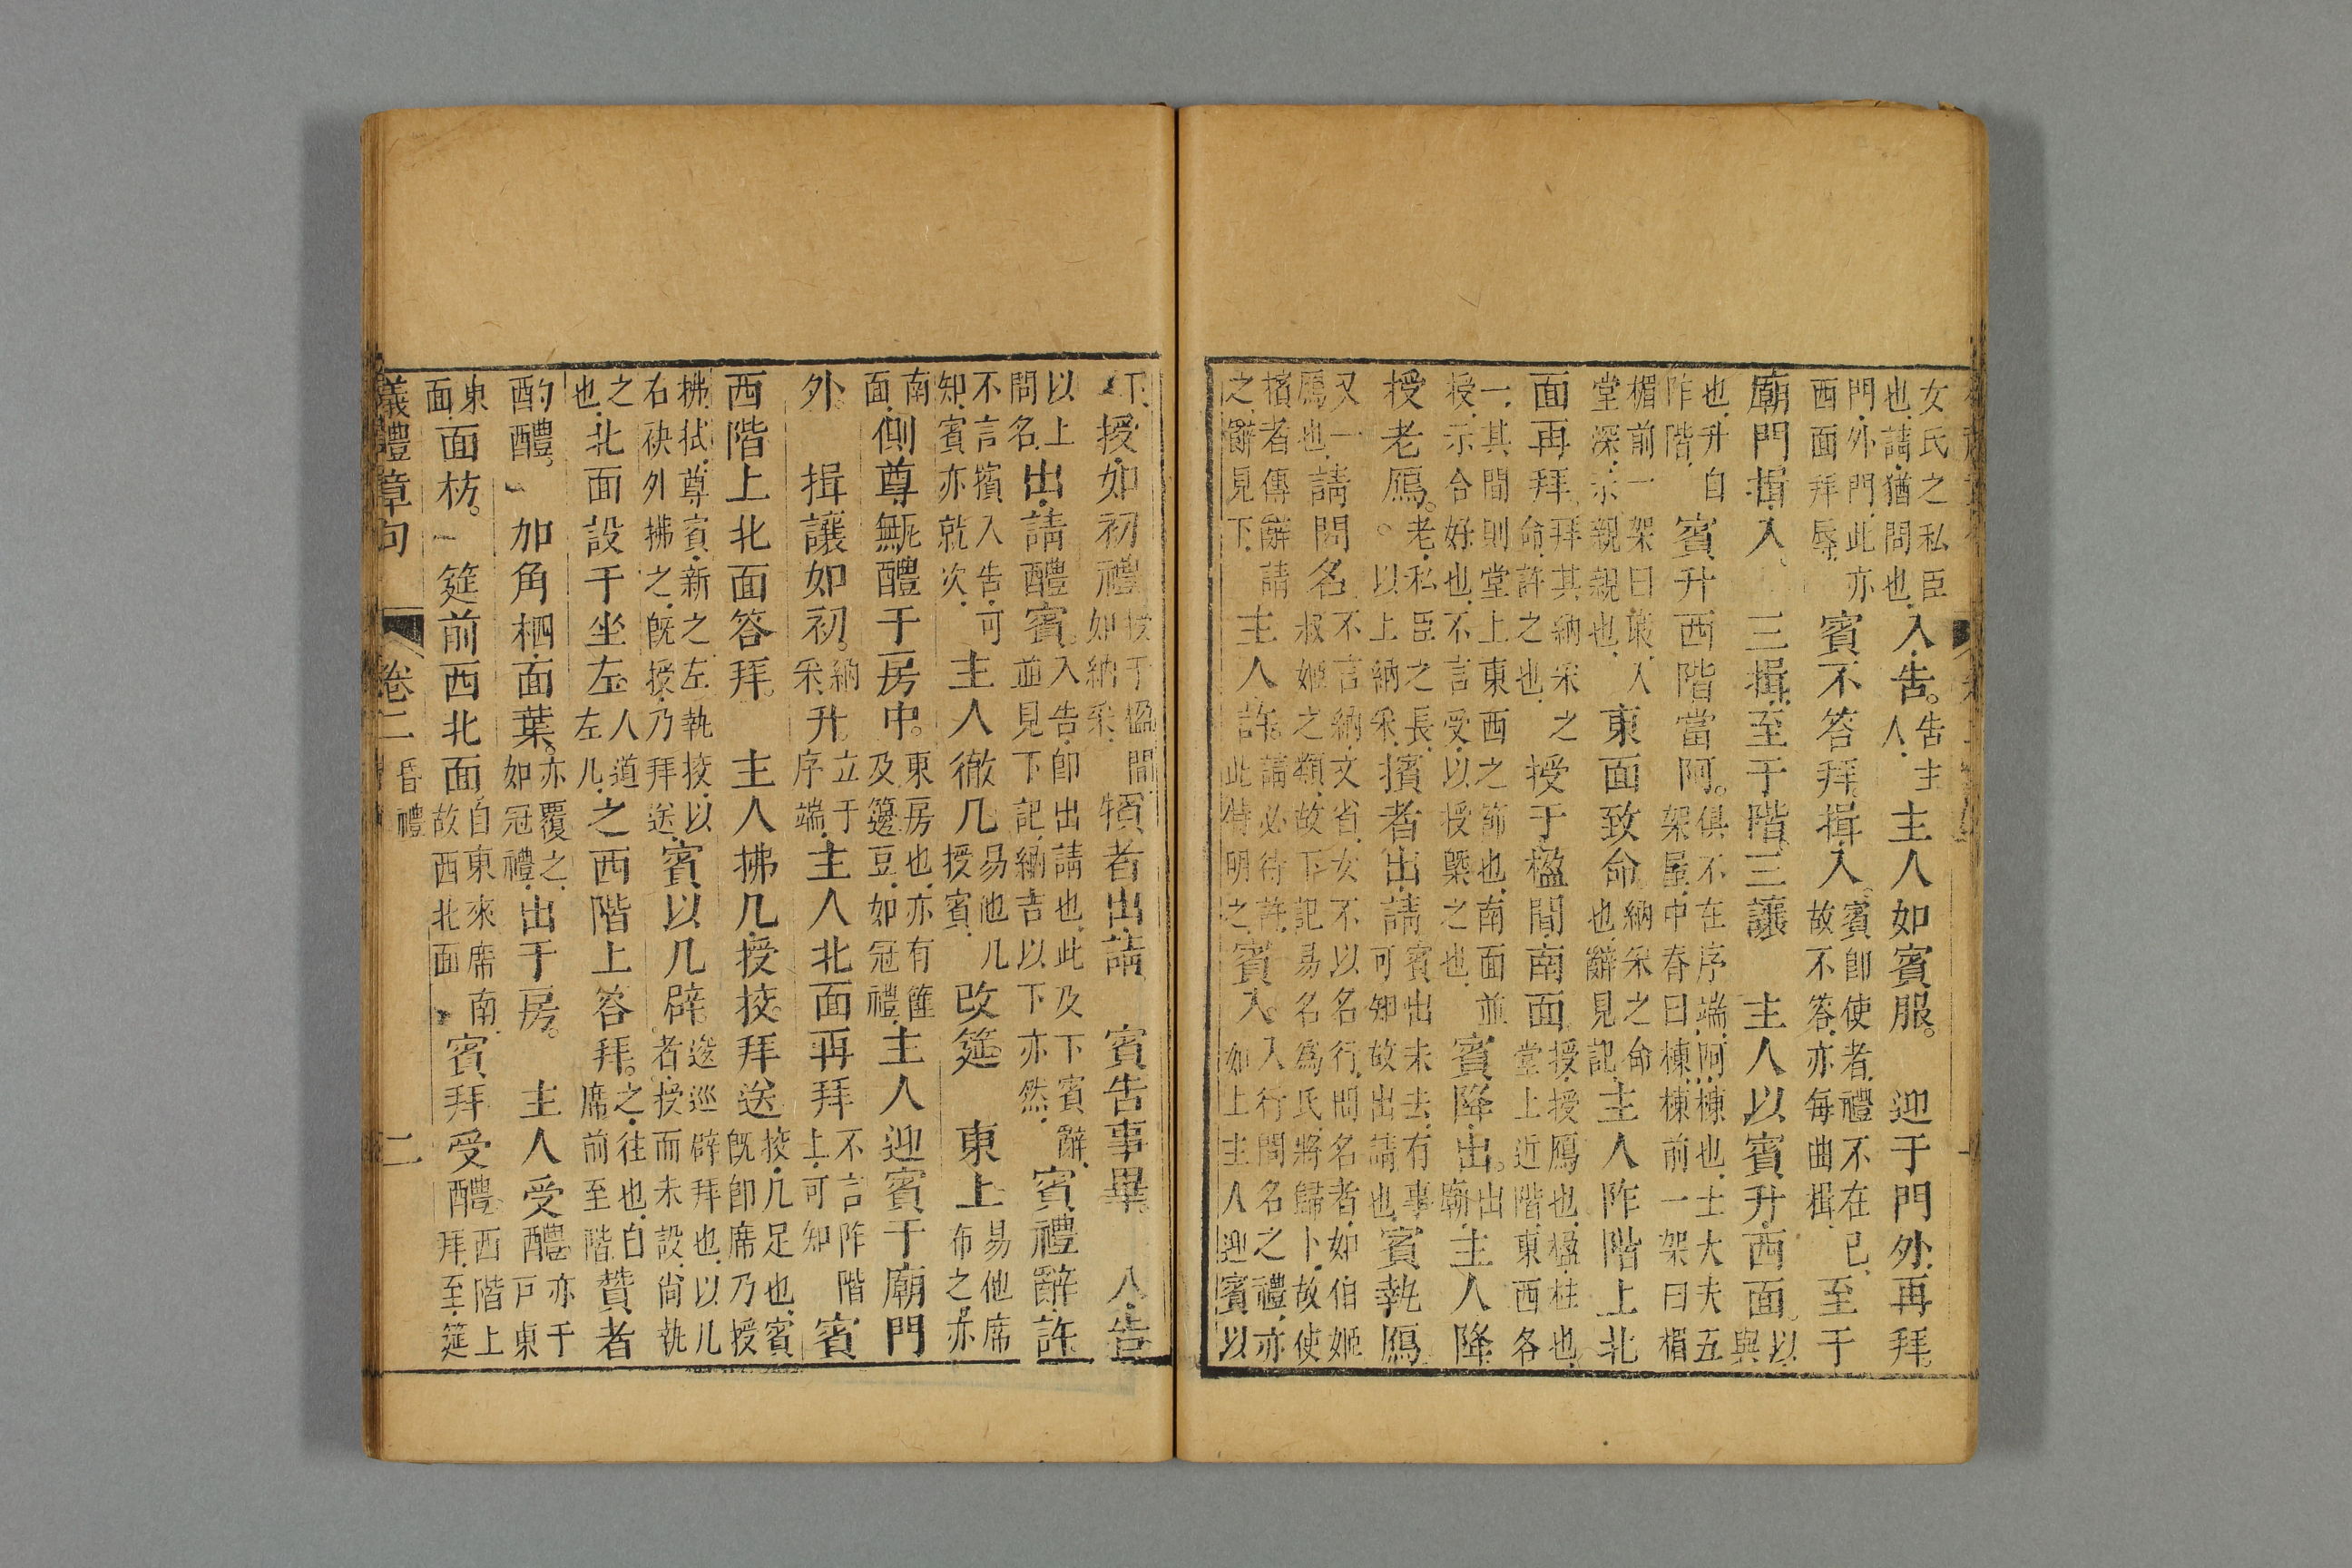 女氏之私臣也請猶問也入告告主人主人如賓服迎于門外再拜
門外門此亦西面拜辱賓不答拜揖入賓即使者禮不在已故不答亦每曲揖至于
廟門揖入三揖至于階三讓主人以賓升西面以與
也升自阼階賓升西階當阿俱不在序端阿棟也士大夫五架屋中脊曰棟棟前一架曰楣
楣前一架曰庪入堂深示親親也東面致命納采之命也辭見記主人阼階上北
面再拜拜其納采之命許之也授于楹間南面授授鴈也楹柱也堂上近階東西各
一其間則堂上東西之節也南面並授示合好也不言受以授槩之也賓降出出廟主人降
授老鴈老私臣之長以上納采擯者出請賓出未去有事可知故出請也賓執鴈
又一鴈也請問名不言納文省女不以名行問名者如伯姬叔姬之類故下記易名爲氏將歸卜故使
擯者傳辭請之辭見下主人許請必待許此特明之賓入入行問名之禮亦如上主人迎賓以
下授如初禮授于楹間如納采擯者出請賓告事畢入告
以上問名出請醴賓入告即出請也此及下賓辭並見下記納吉以下亦然賓禮辭許
不言擯入告可知賓亦就次主人徹几易他几授賓改筵東上易他席布之亦
南面側尊甒醴于房中東房也亦有篚及籩豆如冠禮主人迎賓于廟門
外揖讓如初納采升立于序端主人北面再拜不言阼階上可知賓
西階上北面答拜主人拂几授校拜送校几足也賓既即席乃授
拂拭尊賓新之左執校以右袂外拂之既授乃拜送賓以几辟逡巡辟拜也以几者授而未設尚執
之也北面設于坐左人道左几之西階上答拜之往也自席前至階贊者
酌醴加角柶面葉亦覆之如冠禮出于房主人受醴亦于戶東
東面面枋筵前西北面自東來席南故西北面賓拜受醴西階上拜至筵
儀禮章句 卷二昏禮 二